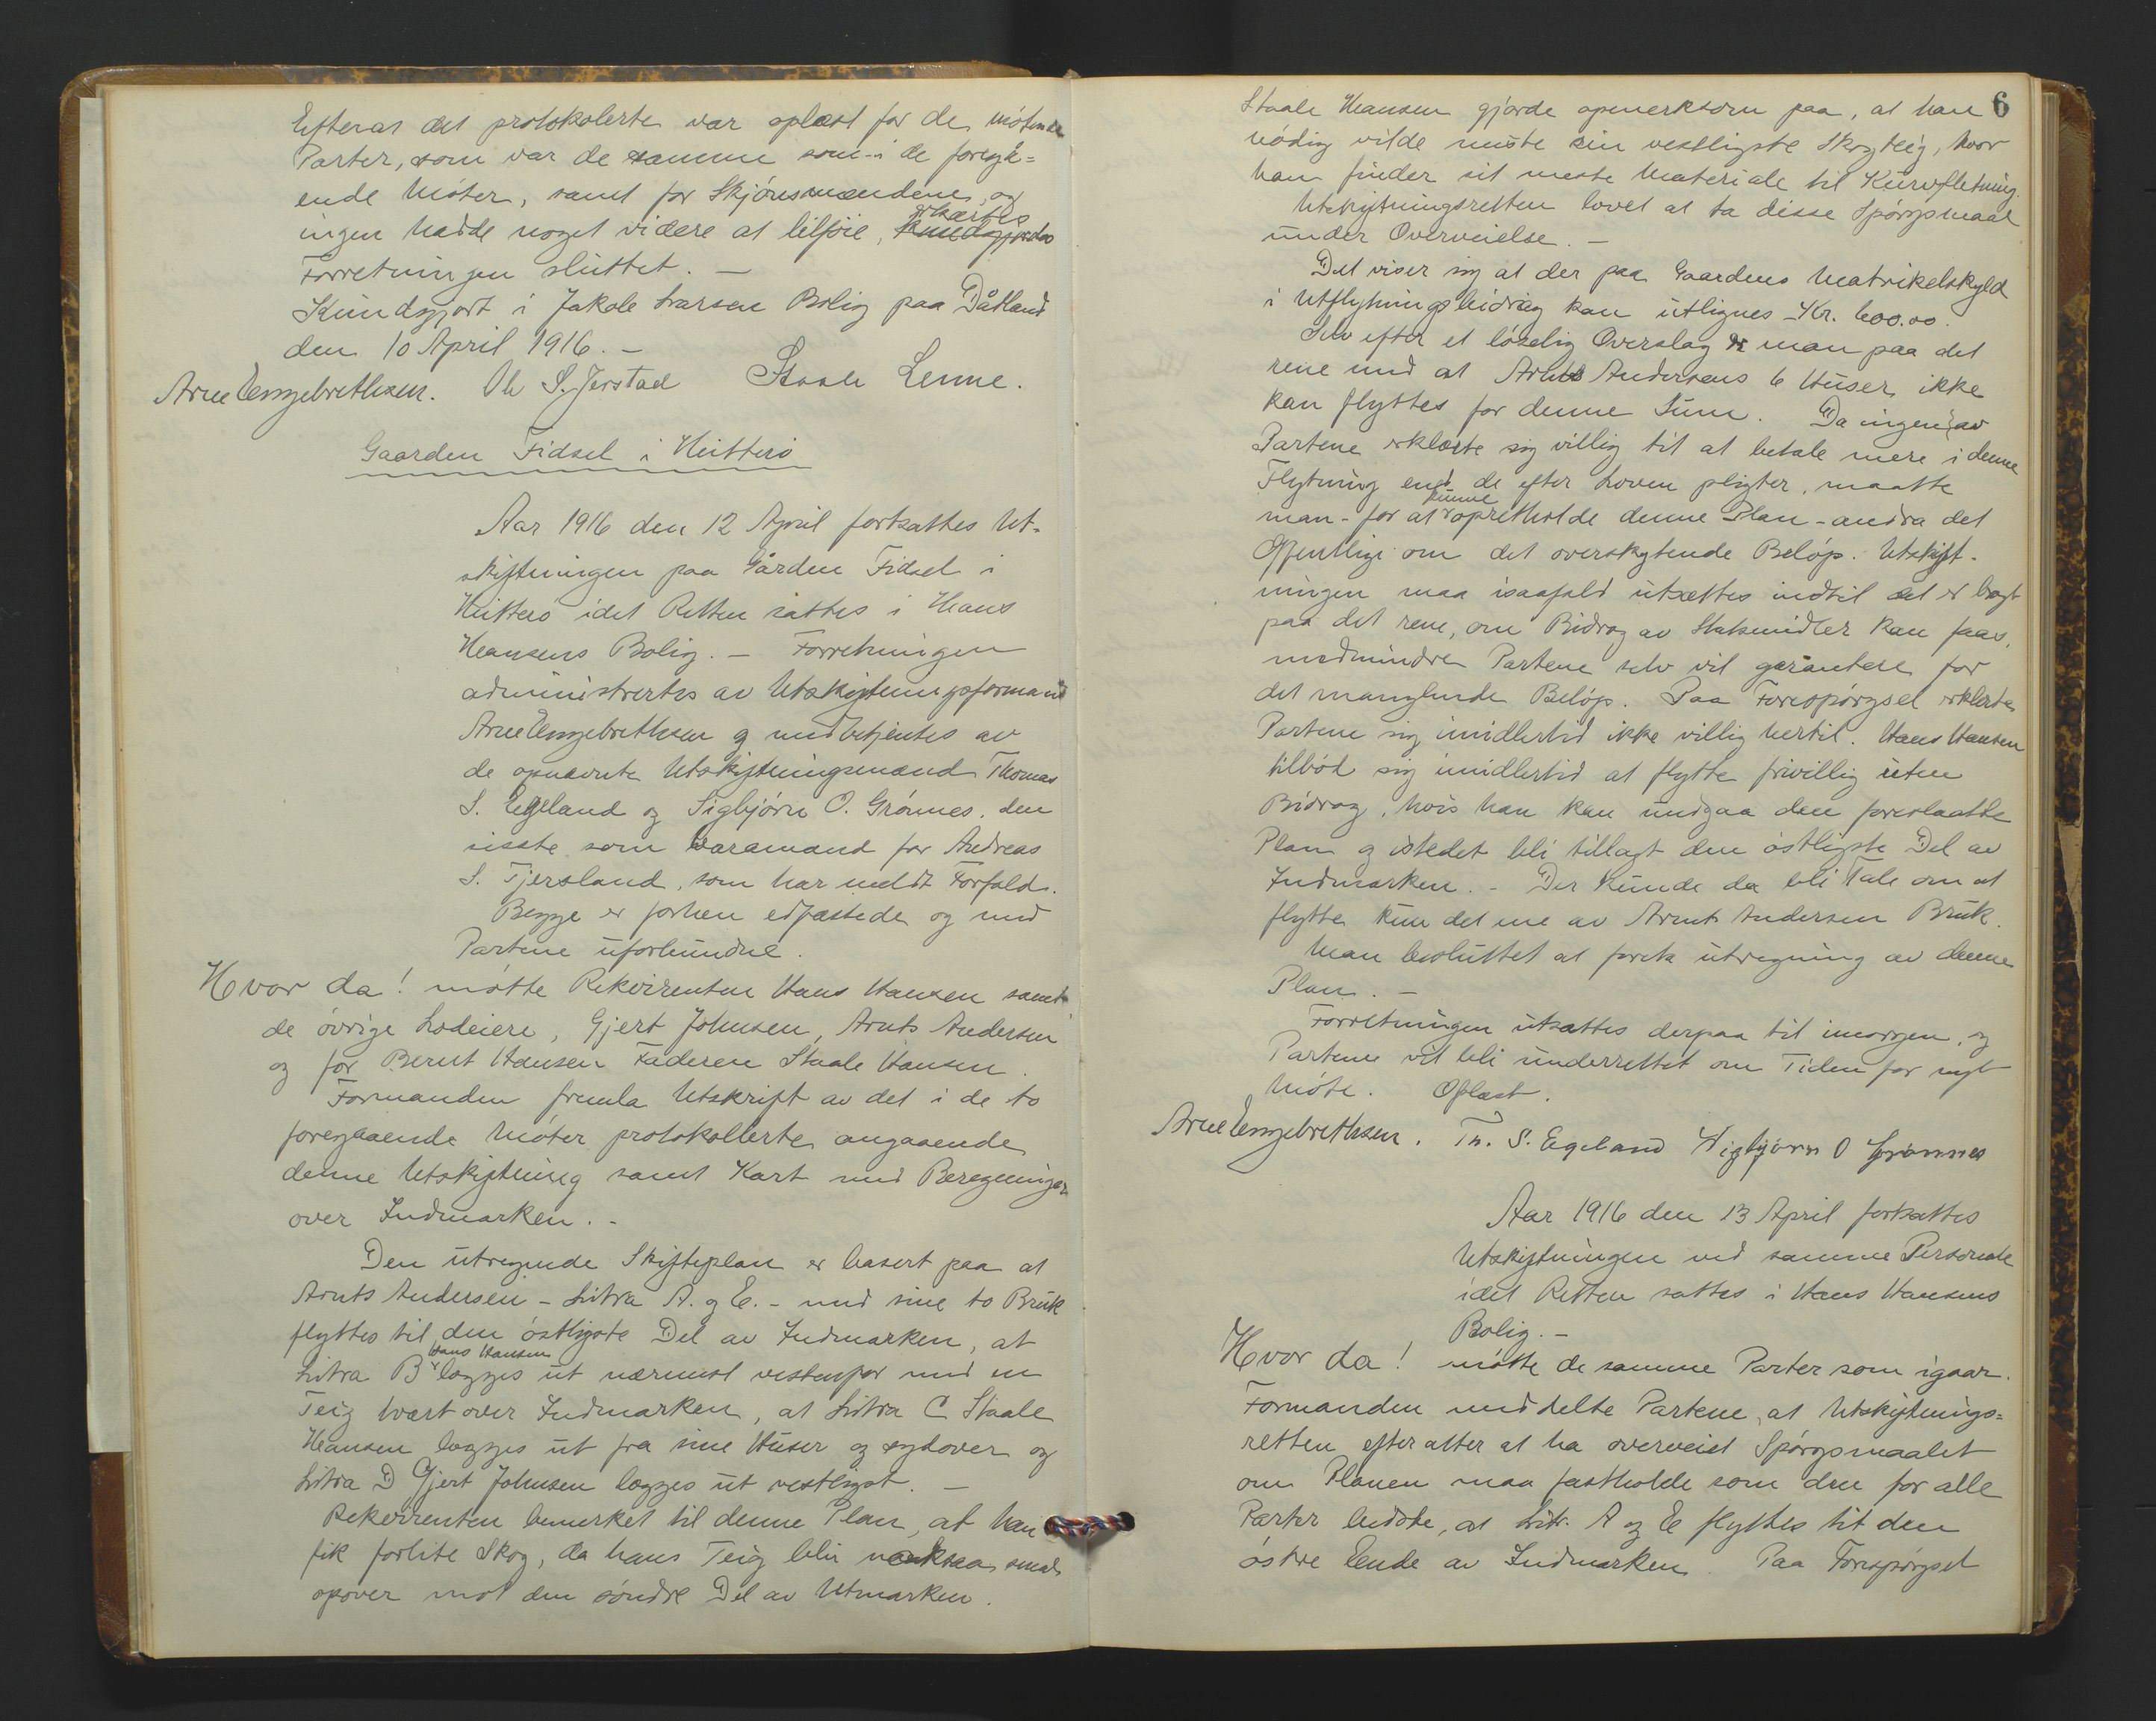 Efterat det protokolerte var oplæst for de møtende
Parter, som var de samme som i de foregå=
ende Møter, samt for Skjønsmændene, og
ingen hadde noget videre at tilføie, erklærtes
Forretningen sluttet. —
Kundgjort i Jakob Larsen Bolig paa Dåtland
den 10 April 1916. —
Arne Engebrethsen. Ole S. Jerstad Staale Lenne.
Gaarden Fidsel i Hitterø
Aar 1916 den 12 April fortsattes Ut-
skiftningen paa Gården Fidsel i
Hitterø idet Retten sattes i Hans
Hansens Bolig. — Forretningen
administrertes av Utskiftningsformand
Arne Engebrethsen og medbetjentes av
de opnævnte Utskiftningsmænd Thomas
S. Egeland og Sigbjørn O. Grønnes, den
sisste som Varamand for Andreas
S. Tjersland, som har meldt Forfald.
Begge er forhen edfæstede og med
Partene uforbundne.
Hvor da! møtte Rekvirenten Hans Hansen samt
de øvrige Lodeiere, Gjert Johnsen, Arnts Andersen
og for Bernt Hansen Faderen Staale Hansen.
Formanden fremla Utskrift av det i de to
foregaaende Møter protokollerte angaaende
denne Utskiftning samt Kart med Beregninger
over Indmarken. -
Den utregnede Skifteplan er basert paa at
Arnts Andersen - Litra A. og E. - med sine to Bruk
flyttes til den østligste Del av Indmarken, at
Litra B Hans Hansen lægges ut nærmest vestenfor med en
Teig tvært over Indmarken, at Litra C Staale
Hansen lægges ut fra sine Huser og sydover og
Litra D Gjert Johnsen lægges ut vestligst. —
Rekvirenten bemerket til denne Plan, at han
fik forlite Skog, da hans Teig blir noksaa smal
opover mot den søndre Del av Utmarken.
6
Staale Hansen gjorde opmerksom paa, at han
nødig vilde miste sin vestligste Skogteig, hvor
han finder sit meste Materiale til Kurvfletning.
Utskiftningsretten lovet at ta disse Spørgsmaal
under Overveielse. —
Det viser sig at der paa Gaardens Matrikelskyld
i Utflytningsbidrag kan utlignes Kr. 600.00.
Selv efter et løselig Overslag er man paa det
rene med at Arnts Andersens 6 Huser ikke
kan flyttes for denne Sum. Da ingen av
Partene erklærte sig villig til at betale mere i denne
Flytning end de efter Loven pligter, maatte
man - for at kunne opretholde denne Plan - andra det
Offentlige om det overskytende Beløp. Utskift-
ningen maa isaafald utsættes indtil det er bragt
paa det rene, om Bidrag av Statsmidler kan faas,
medmindre Partene selv vil garantere for
det manglende Beløp. Paa Forespørgsel erklærte
Partene sig imidlertid ikke villig hertil. Hans Hansen
tilbød sig imidlertid at flytte frivillig uten
Bidrag, hvis han kan undgaa den foreslaatte
Plan og istedet bli tillagt den østligste Del av
Indmarken. - Der kunde da bli Tale om at
flytte kun det ene av Arnts Andersen Bruk.
Man besluttet at foreta utregning av denne
Plan. —
Forretningen utsattes derpaa til imorgen, og
Partene vil bli underrettet om Tiden for nyt
Møte. Oplæst.
Arne Engebrethsen. Th. S. Egeland Sigbjørn O Grønnes
Aar 1916 den 13 April fortsattes
Utskiftningen ved samme Personale
idet Retten sattes i Hans Hansens
Bolig. -
Hvor da! møtte de samme Parter som igaar.
Formanden meddelte Partene, at Utskiftnings=
retten efter atter at ha overveiet Spørgsmaalet
om Planen maa fastholde som den for alle
Parter bedste, at Litr. A og E flyttes til den
østre Ende av Indmarken. Paa Forespørgsel